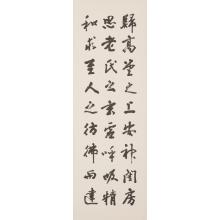 歸高堂之上安神閨房
思老氏之玄虛呼吸精
和求至人之彷彿達